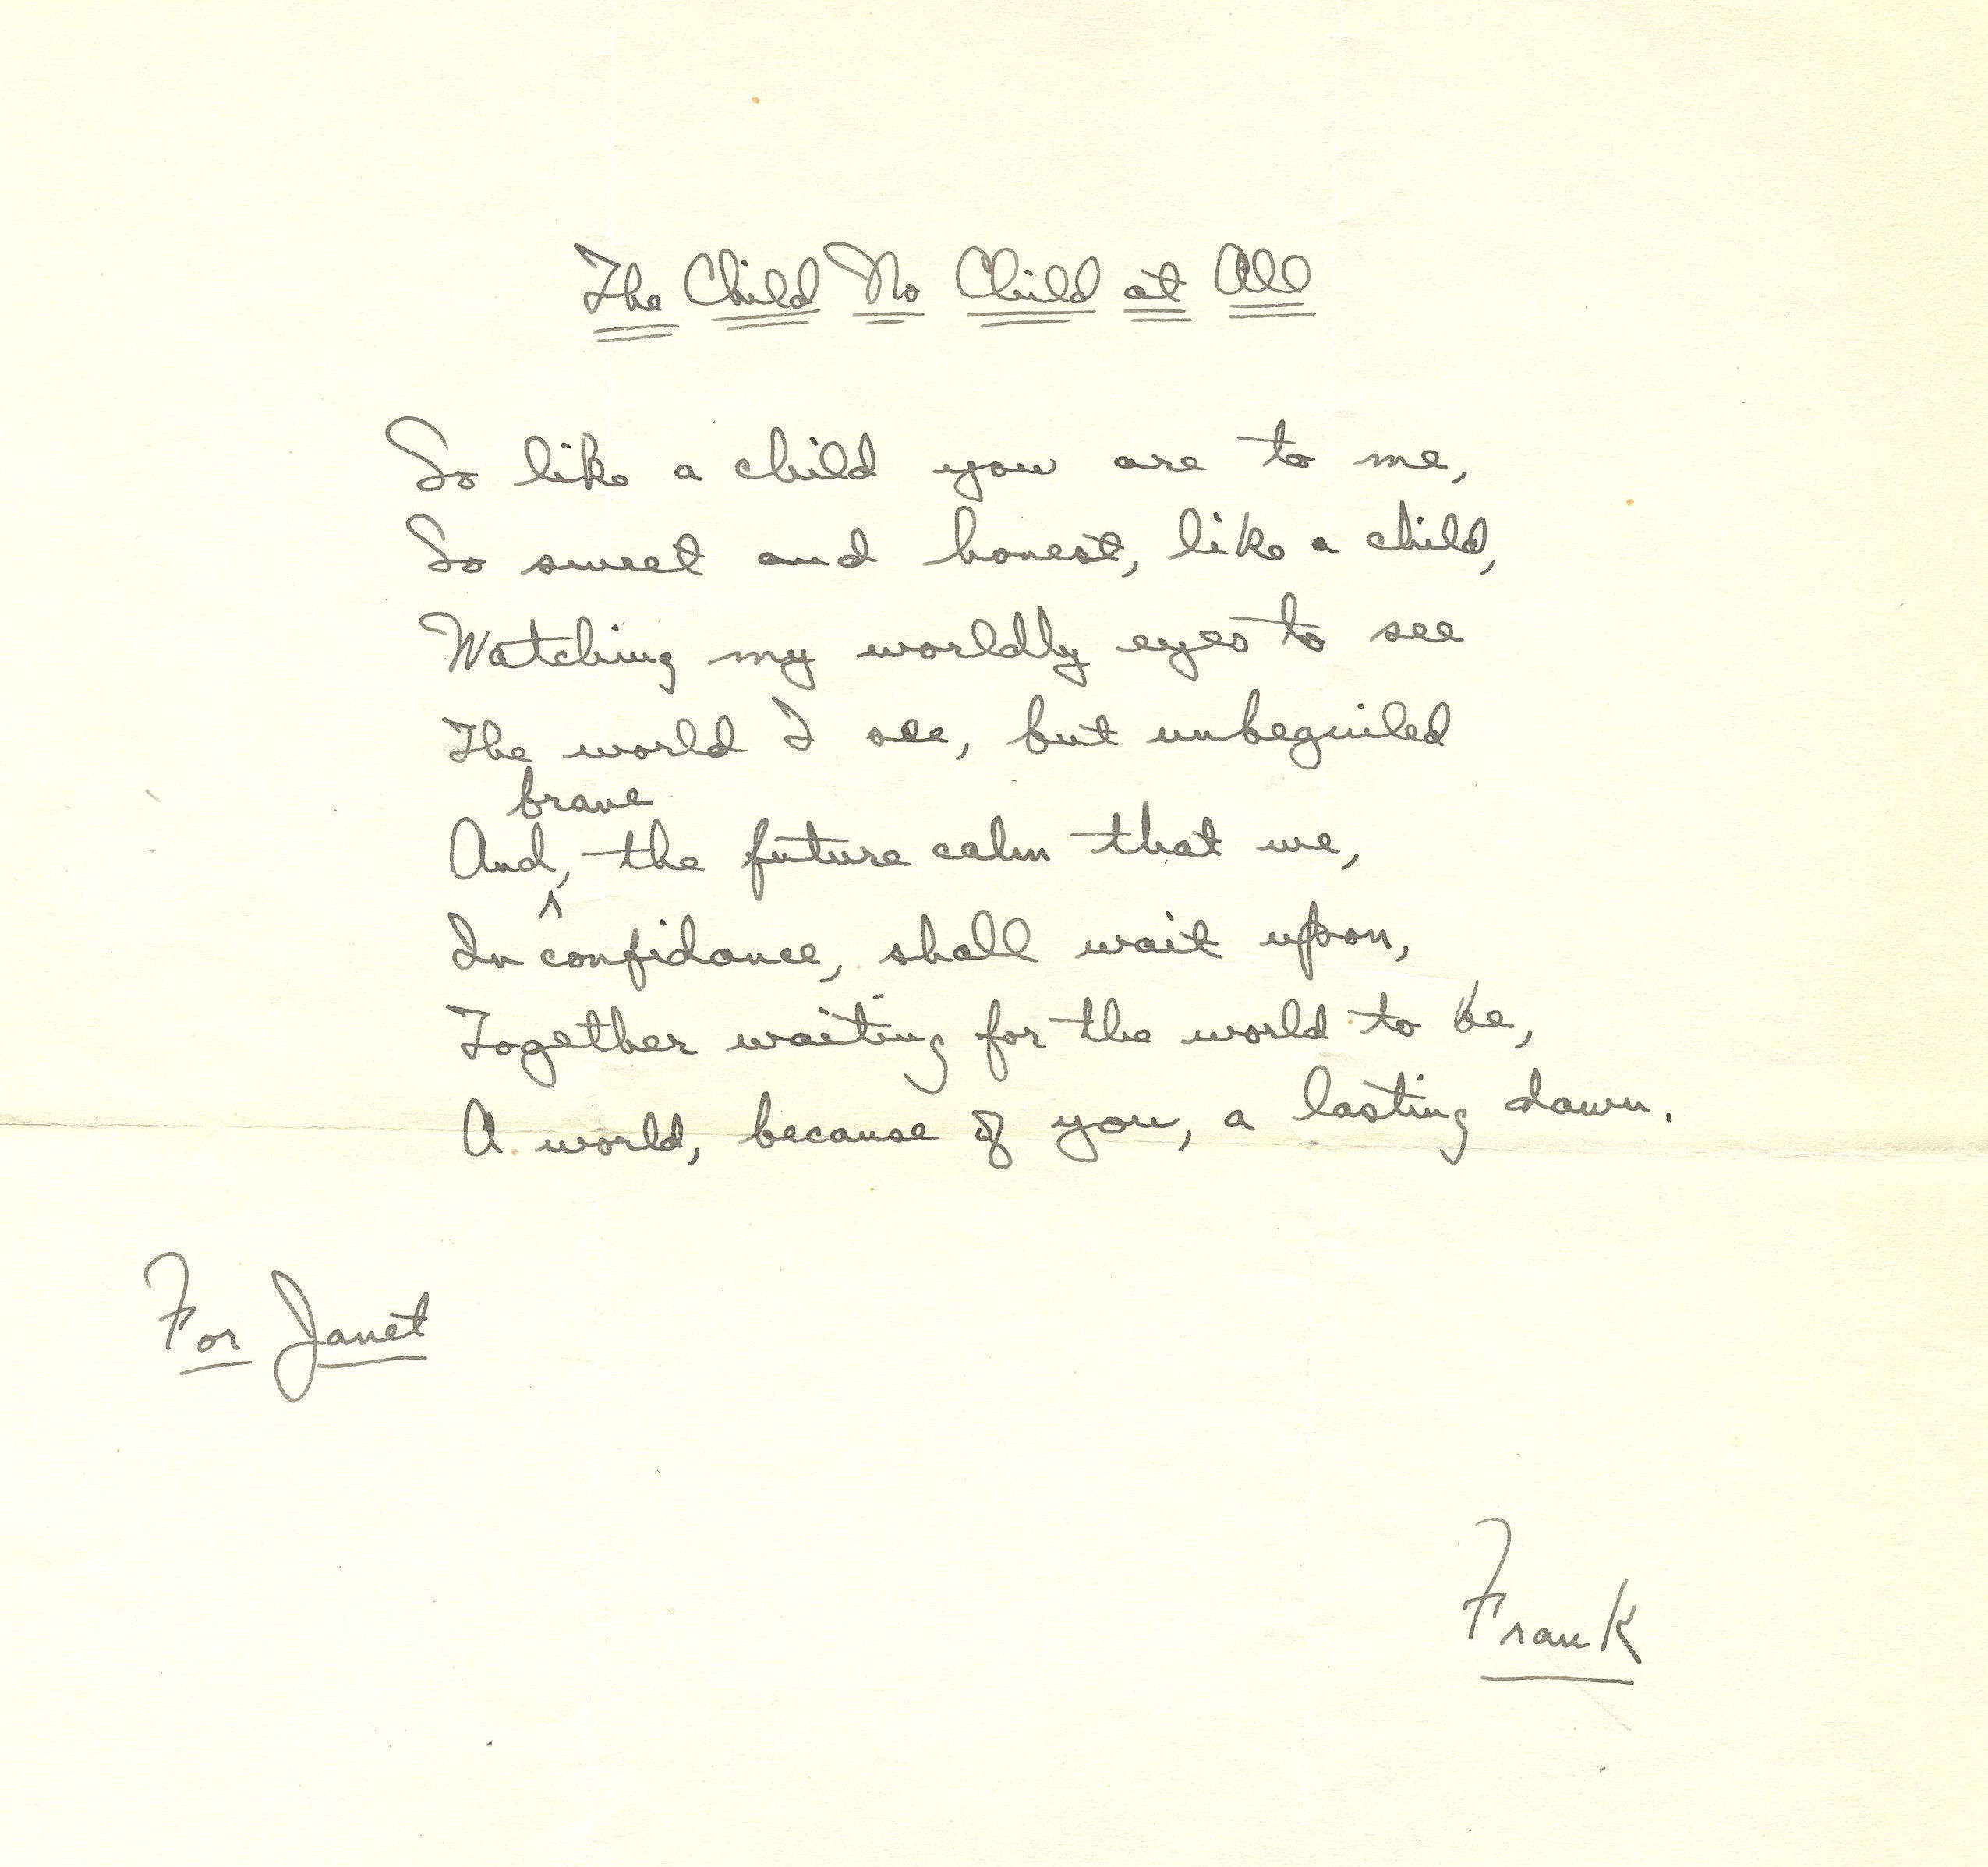 The Child No Child at All
So like a child you are to me,
So sweet and honest, like a child,
Watching my worldly eyes to see
The world I see, but unbeguiled
brave
And, the future calm that we,
^
In confidance, shall wait upon,
Together waiting for the world to be,
A world, because of you, a lasting dawn.
For Janet
Frank